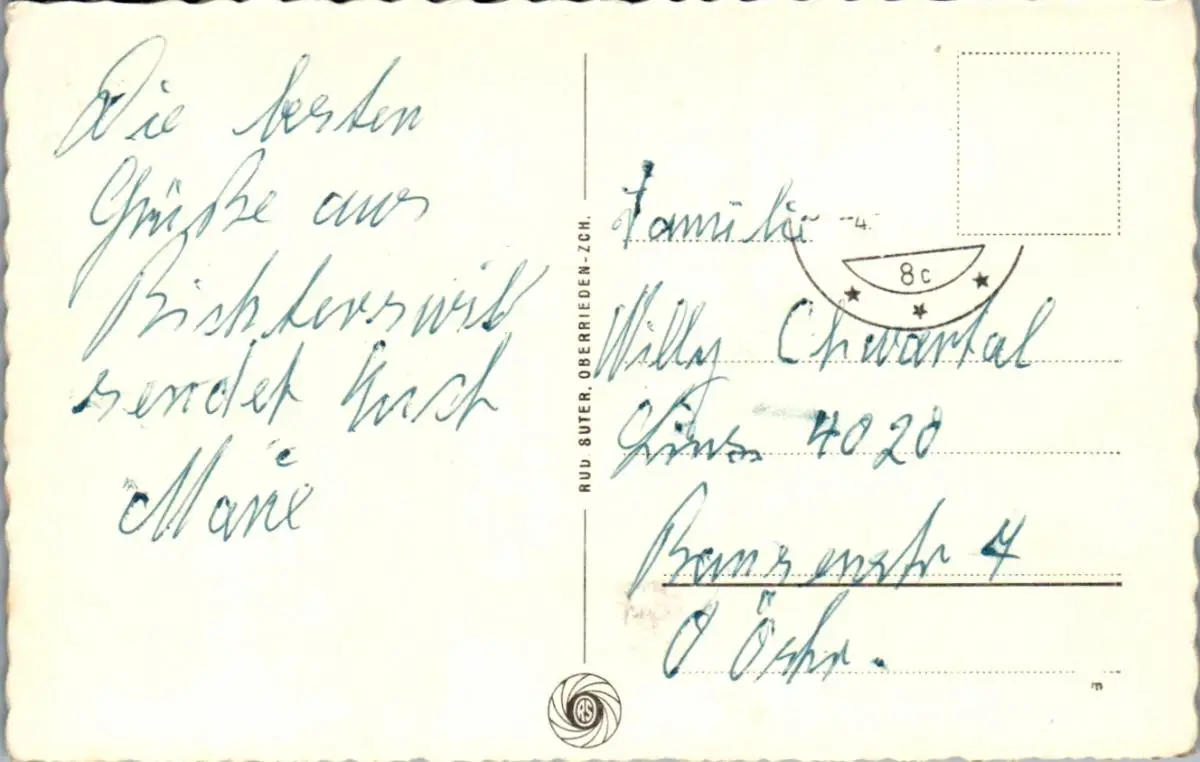 Die besten
Grüße aus
Richterswil
sendet Euch
Marie
RUD. SUTER, OBERRIEDEN-ZCH.
RS
Familie
-4.
8c
Willy Chvartal
Linz 4020
4
O Östr.
m